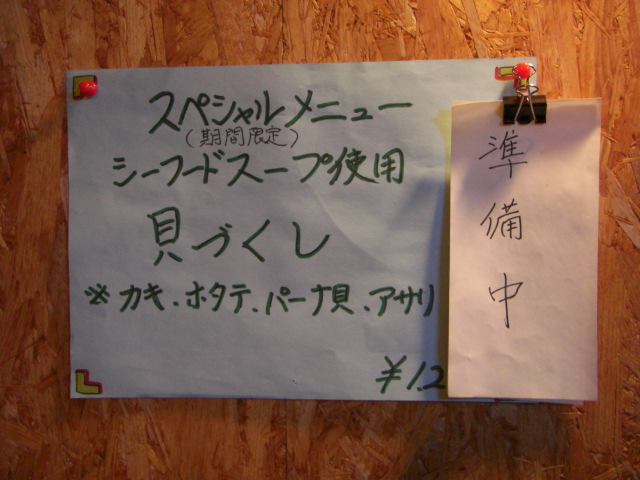 スペシャルメニュー
(期間限定)
シーフードスープ使用
貝づくし
※カキ、ホタテ、パーナ貝、アサリ
¥1.2
準備中